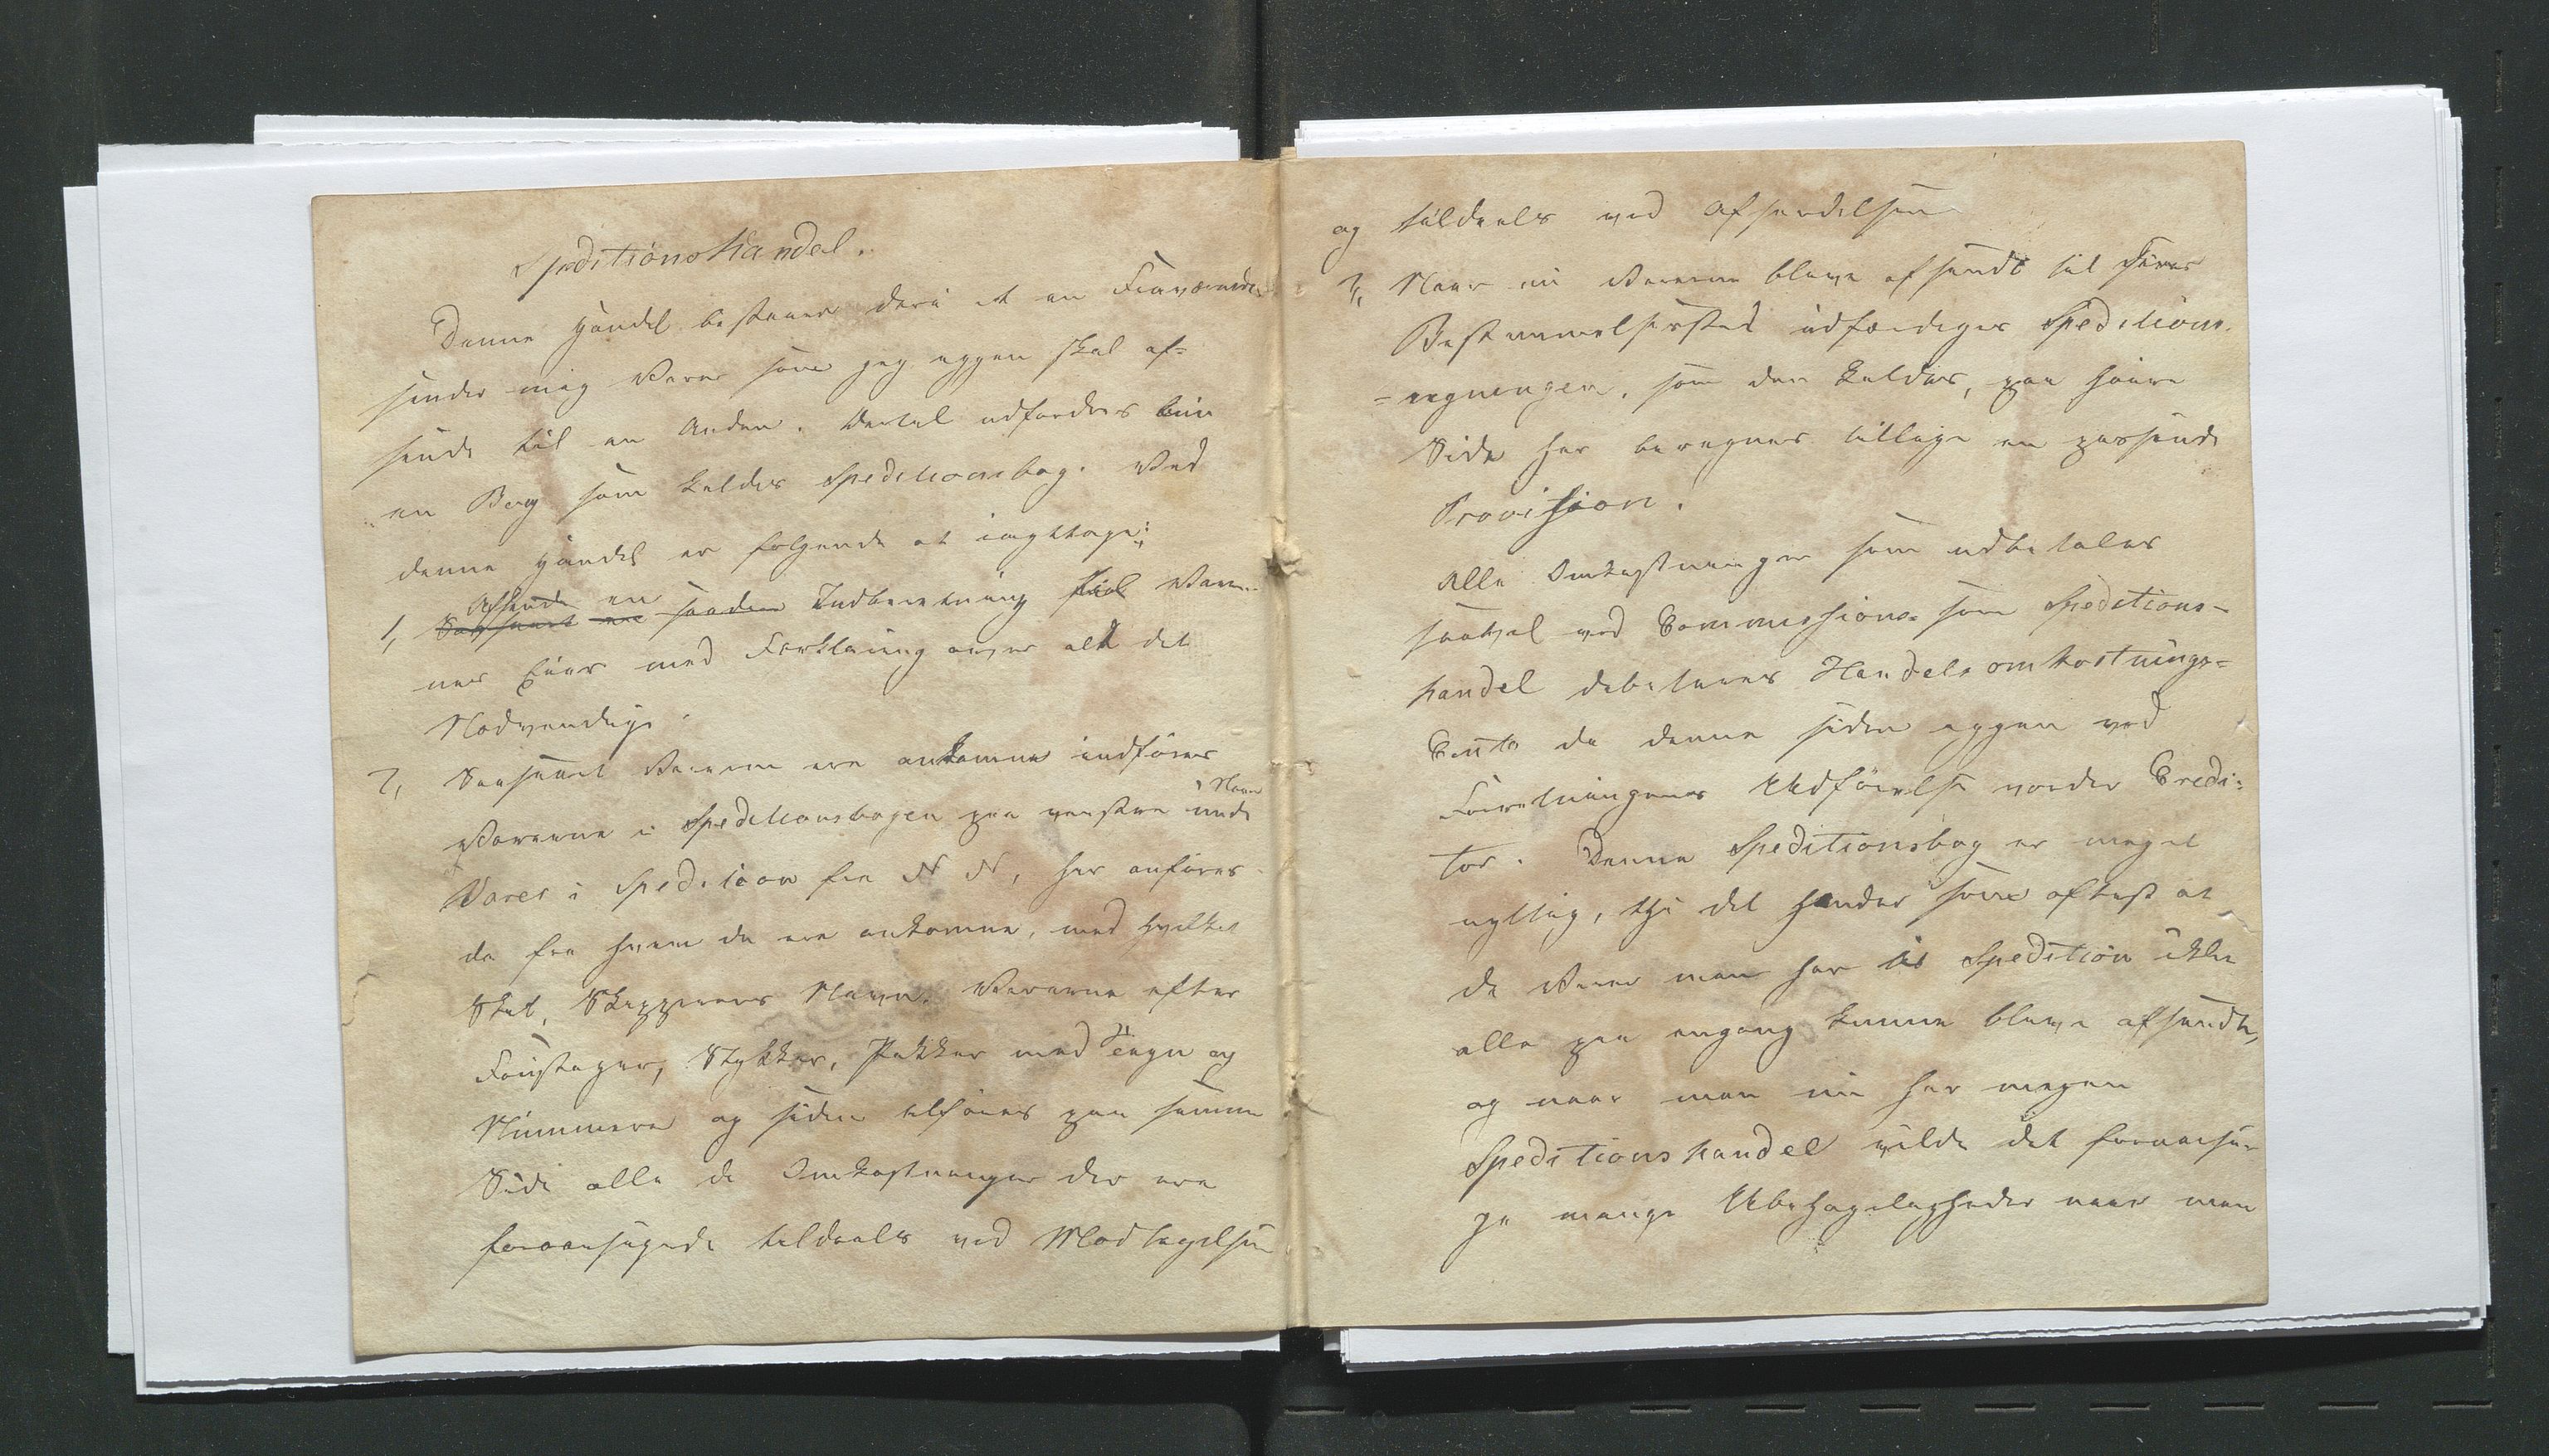 Speditionshandel.
Denne Handel bestaaer deri at en Fraværende
sender mig Varer som jeg igjen skal af=
sende til en Anden. Dertil udfordres kun
en Bog som kaldes Speditionsbog. Ved
denne Handel er følgende at iagttage:
Afsende en
1, Saasnart en saadan Indberetning til Varer-
nes Eier med Forklaring over alt det
Nødvendige.
2, Saasnart Varerne ere ankomne indføres
Navn
Varerne i Speditionsbogen paa venstre under
Varer i Spedition fra N N, her anføres
da fra hvem de ere ankomne, med hvilket
Skib, Skipperens Navn. Varerne efter
Foustager, Stykker, Pakker med Tegn og
Nummere og siden tilføies paa samme
Side alle de Omkostninger der ere
foraarsagede tildeels ved Modtagelsen
og tildeels ved Afsendelsen
3, Naar nu Varerne bleve afsendt til deres
Bestemmelsessted udfærdiges Speditions-
=regningen, som den kaldes, paa høire
Side her beregnes tillige en passende
Provision.
Alle Omkostninger som udbetales
saavel ved Commissions= som Speditions-
handel debiteres Handelsomkostnings=
Conto da denne siden igjen ved
Forretningens Udførelse vorder Credi=
tor. Denne Speditionsbog er meget
nyttig, thi det hender som oftest at
de Varer man har i Spedition ikke
alle paa engang kunne bleve afsendte,
og naar man nu har megen
Speditionshandel vilde det foraarsa-
ge mange Ubehageligheder naar man